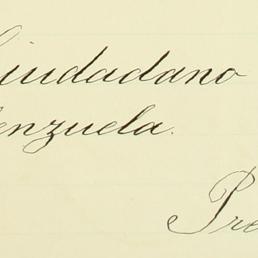 Ciudadano
enzuela.
Pre